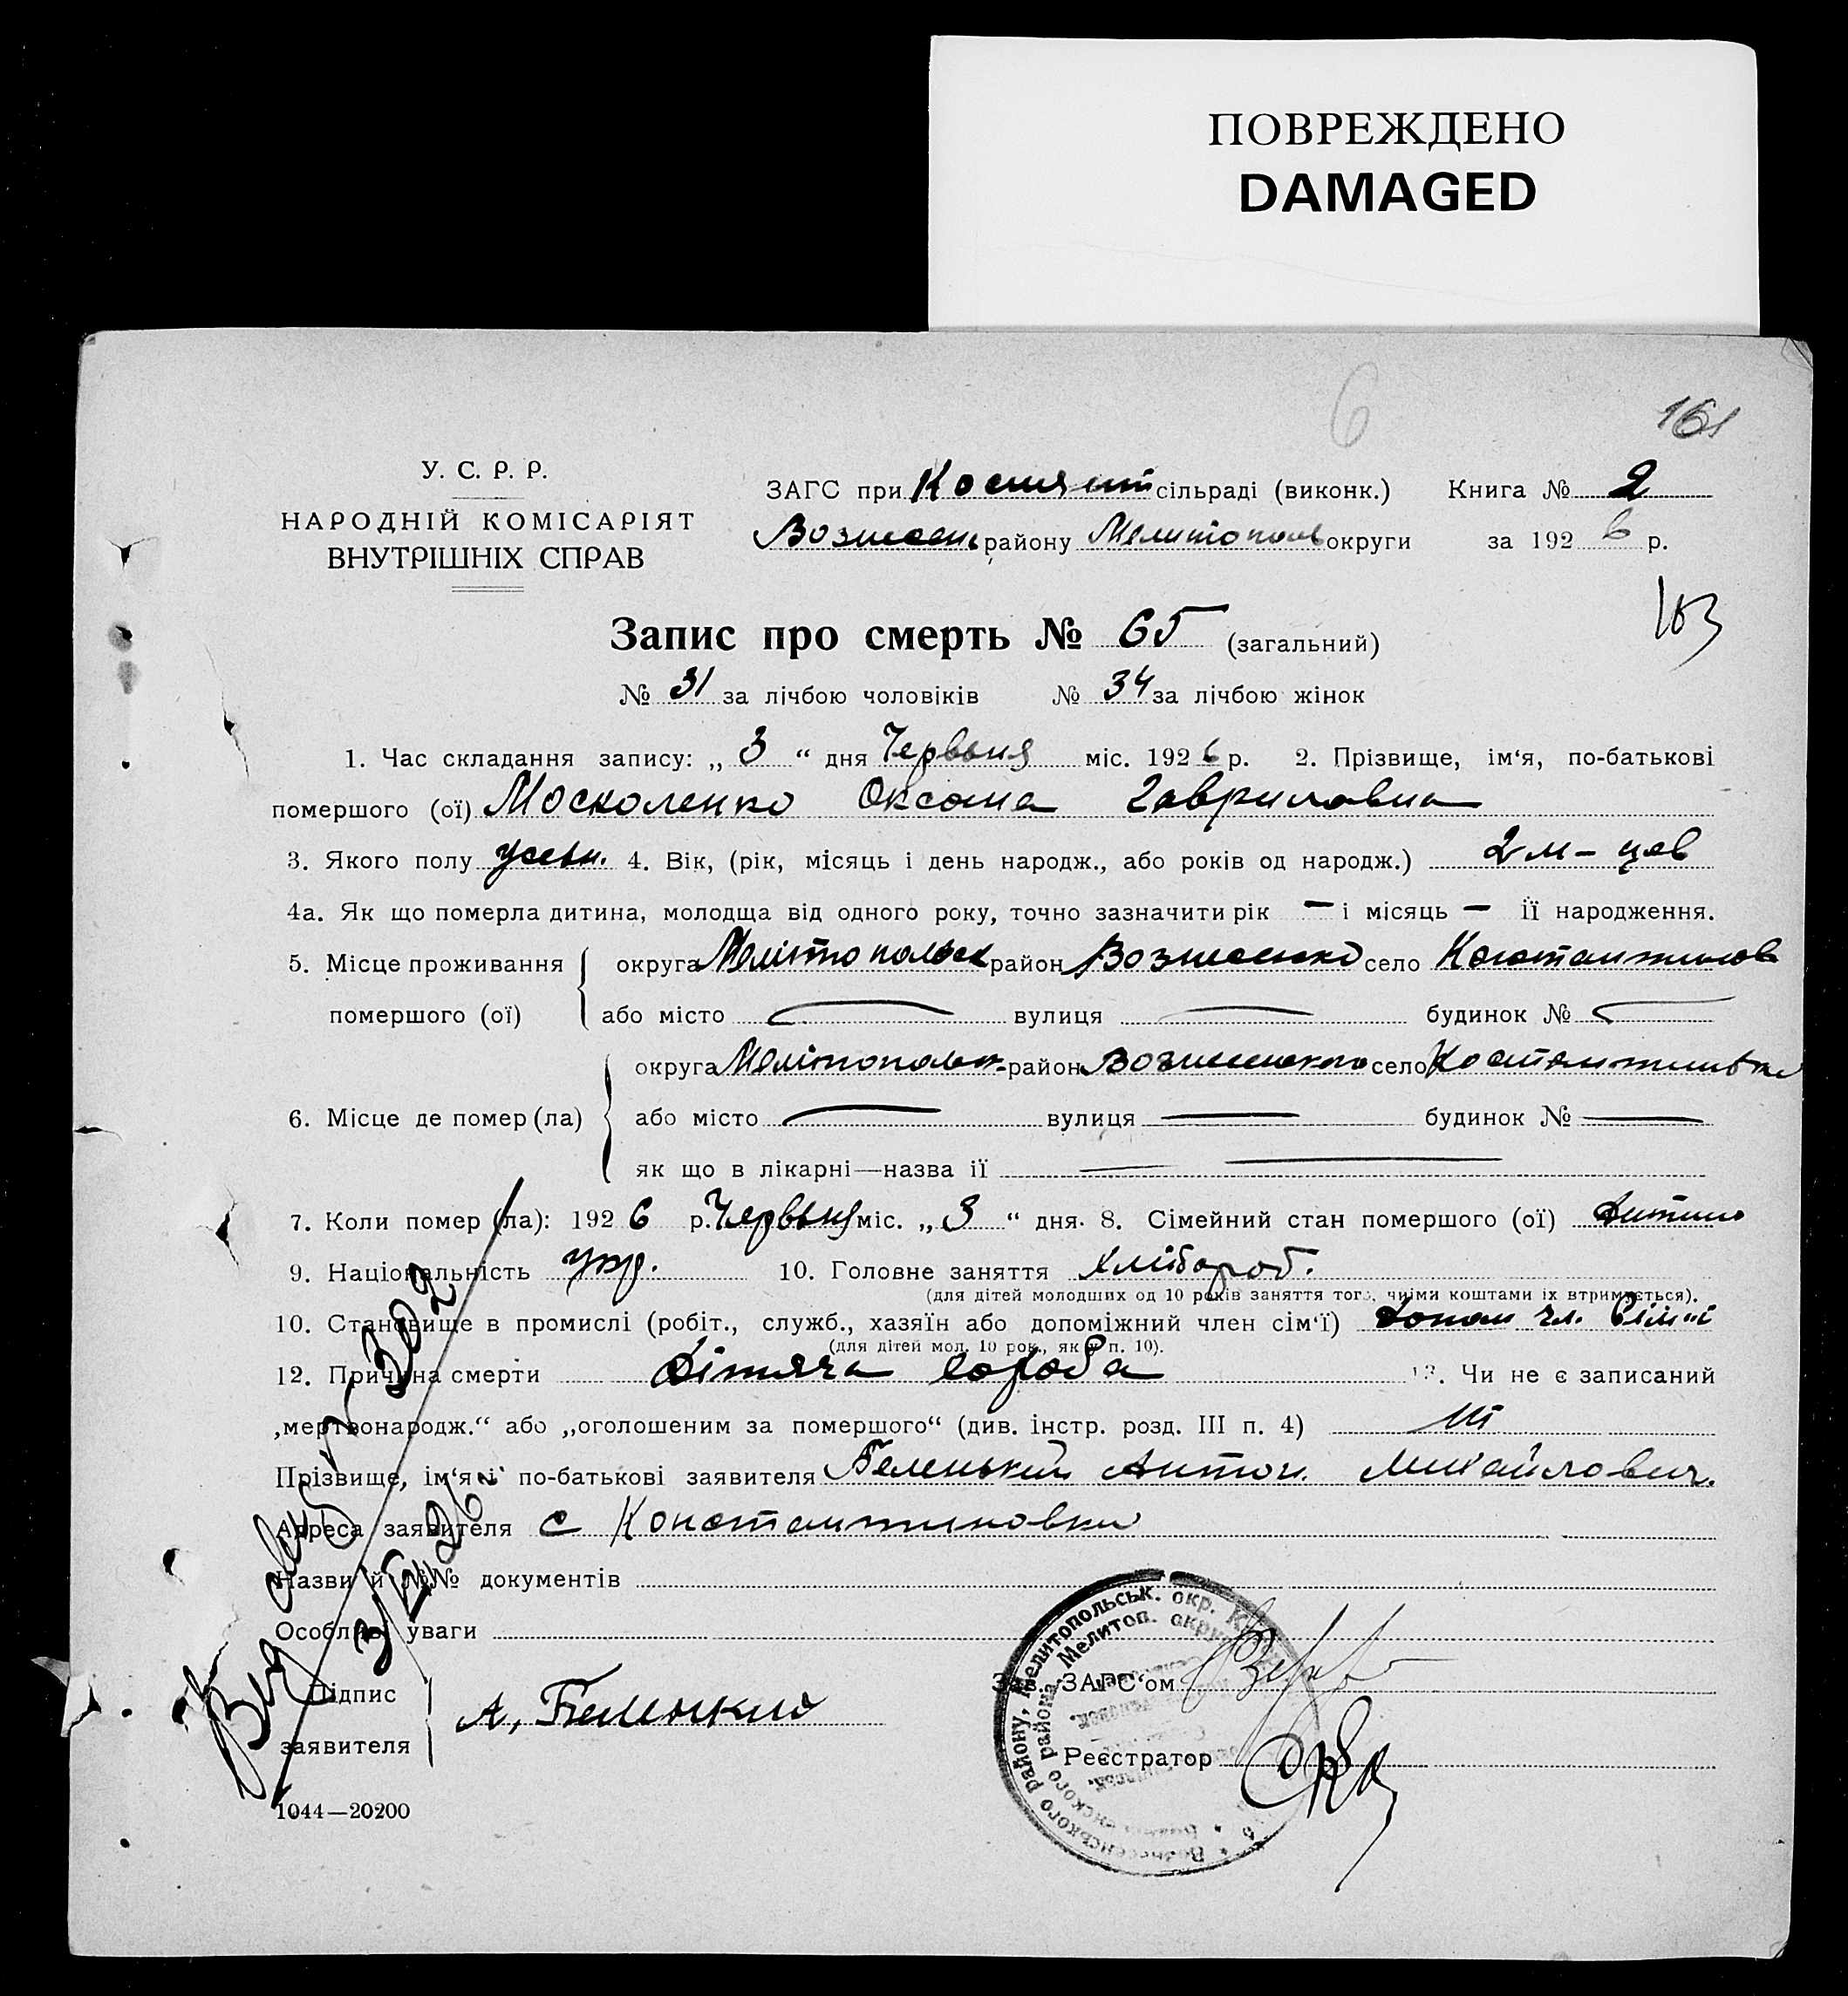 ПОВРЕЖДЕНО
DAMAGED
6
161
У. С. Р. Р.
НАРОДНІЙ КОМІСАРІЯТ
ВНУТРІШНІХ СПРАВ
ЗАГС при Костянт сільраді (виконк.) Книга № 2
Вознесень району Мелитополь округи за 1926 р.
103
Запис про смерть № 65 (загальний)
№ 31 за лічбою чоловіків № 34 за лічбою жінок
1. Час складання запису: „ 3 “ дня Червьня міс. 1926 р. 2. Прізвище, ім‘я, по-батькові
помершого (ої) Москоленко Оксана Гавриловна
3. Якого полу 4. Вік, (рік, місяць і день народж., або років од народж.) 2 м-цев
4а. Як що померла дитина, молодща від одного року, точно зазначити рік — і місяць — її народження.
5. Місце проживання помершого (ої) округа Мелітопольск район Вознесенко село Константинов
або місто — вулиця — будинок № —
6. Місце де помер (ла) округа Мелітопольск район Вознесенского село Костянтинивка
або місто — вулиця — будинок № —
як що в лікарні—назва ії —
7. Коли помер (ла): 1926 р. Червьня міс. „ 3 “ дня. 8. Сімейний стан помершого (ої) дитина
9. Національність укр. 10. Головне заняття хлібороб.
(для дітей молодших од 10 років заняття того, чиїми коштами їх втримується).
10. Становище в промислі (робіт., служб., хазяїн або допоміжний член сім‘ї) допом чл. сімї
(для дітей мол. 10 рок., як у п. 10).
12. Причина смерти дітяча хороба 13. Чи не є записаний
„мертвонародж.“ або „оголошеним за помершого“ (див. інстр. розд. III п. 4) ні
Прізвище, ім‘я і по-батькові заявителя Беленький Антон Михайлович.
Адреса заявителя с Константиновка
Назви й №№ документів
Особливі уваги
Підпис заявителя А, Беленкий
Зав. ЗАГС‘ом
Реєстратор
1044—20200